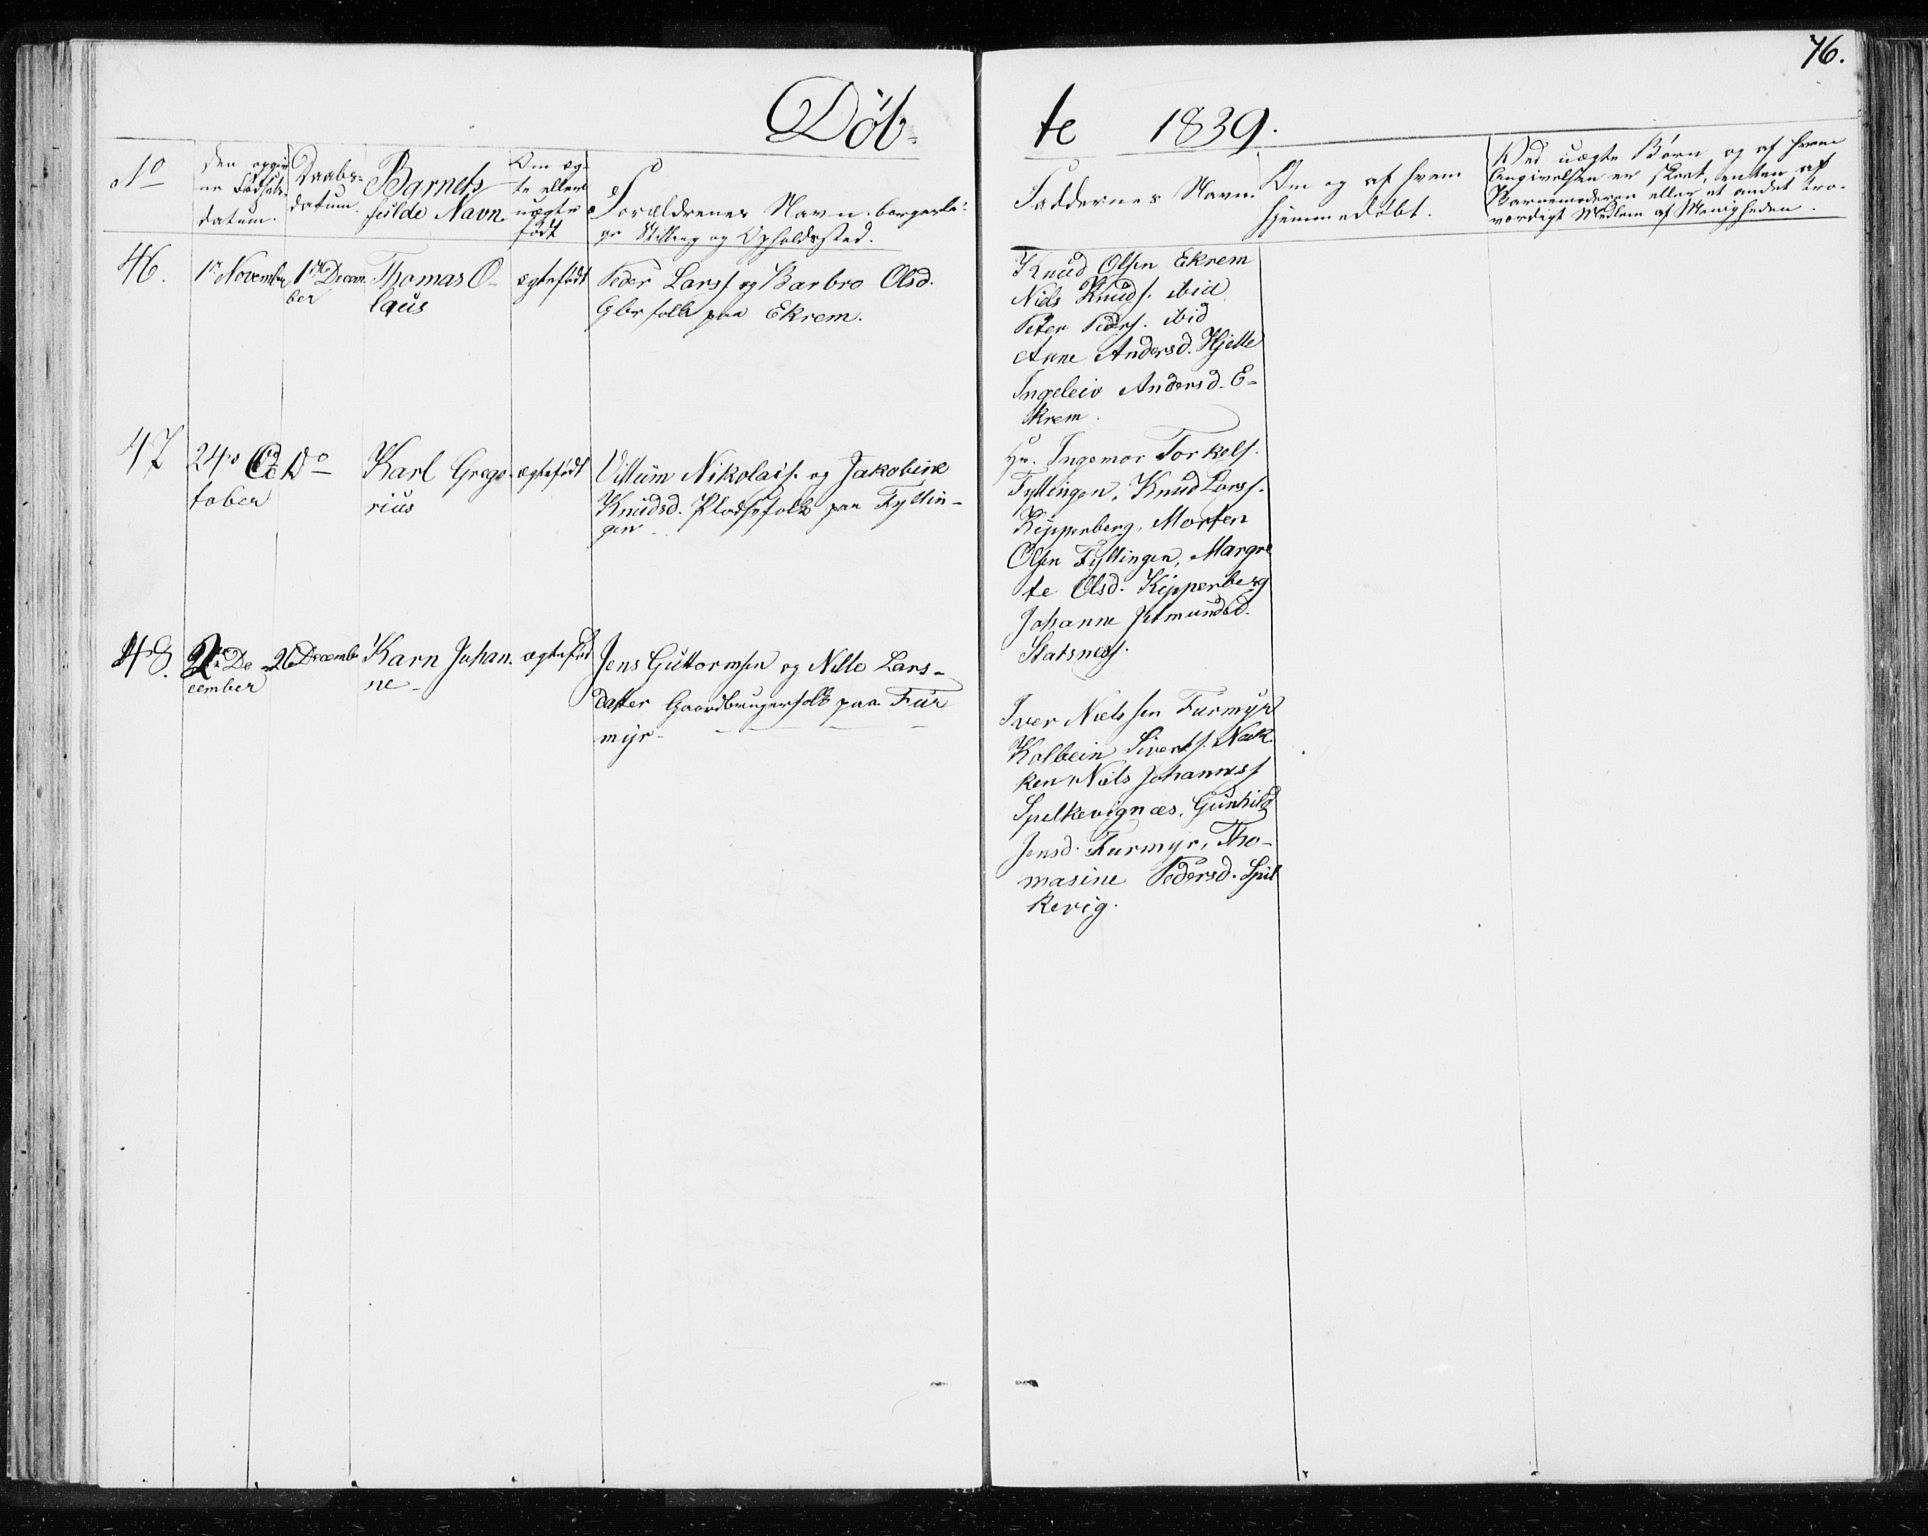 76.
Döb-
te 1839.
No
Den opgiv-
ne Fødsels-
datum.
Daabs-
datum.
Barnets
fulde Navn
Om æg-
te eller
uægte
født
Forældrenes Navn, borgerli-
ge Stilling og Opholdssted.
Faddernes Navn.
Om og af hvem
hjemmedøbt.
Ved uægte Børn og af hvem
Angivelsen er skeet, enten af
Barnemoderen eller et andet tro-
værdigt Medlem af Menigheden.
46.
1ste November
1ste Decem-
ber
Thomas O-
laus
ægtefødt
Peder Larss. og Barbro Olsd.
Gbrfolk paa Ekrem.
Knud Olsen Ekrem
Niels Knuds. ibid
Peter Peders. ibid
Anne Andersd. Hjelle
Ingeleiv Andersd. E-
krem.
47
24de Oc-
tober
Do
Karl Grego-
rius
ægtefødt
Nikolais. og Jakobine
Knudsd. Pladsfolk paa Fyllin-
gen
Ingemor Torkels.
Fyllingen, Knud Larss.
Kipperberg, Morten
Olsen Fyllingen, Margre
te Olsd. Kipperberg
Johanne Jetmundsd.
Slatsness.
48.
2den De-
cember
26 Decembr
Karn Johan-
ne
ægtefød
Jens Guttormsen og Nille Lars-
datter Gaardbrugerfolk paa Fur
myr
Iver Nielssen Furmyr
Kolbein Siverts. Nak-
ken, Niels Johanness
Spelkevignæs, Gunhild
Jensd. Furmyr, Tho-
masine Pedersd. Spil
kevig.